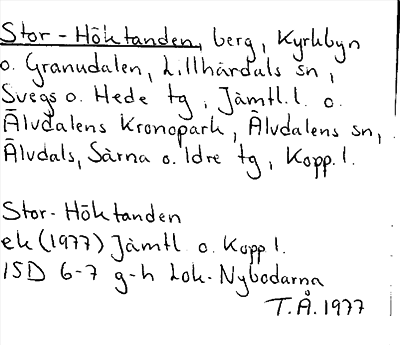 Stor-Höktanden, berg, Kyrkbyn
o. Granudalen, Lillhärdals sn,
Svegs o. Hede tg, Jämtl.l. o.
Älvdalens Kronopark, Älvdalens sn,
Älvdals, Särna o. Idre tg, Kopp.l.
Stor-Höktanden
ek (1977) Jämtl o. Kopp l.
15D 6-7 g-h Lok. Nybodarna
T.Å. 1977